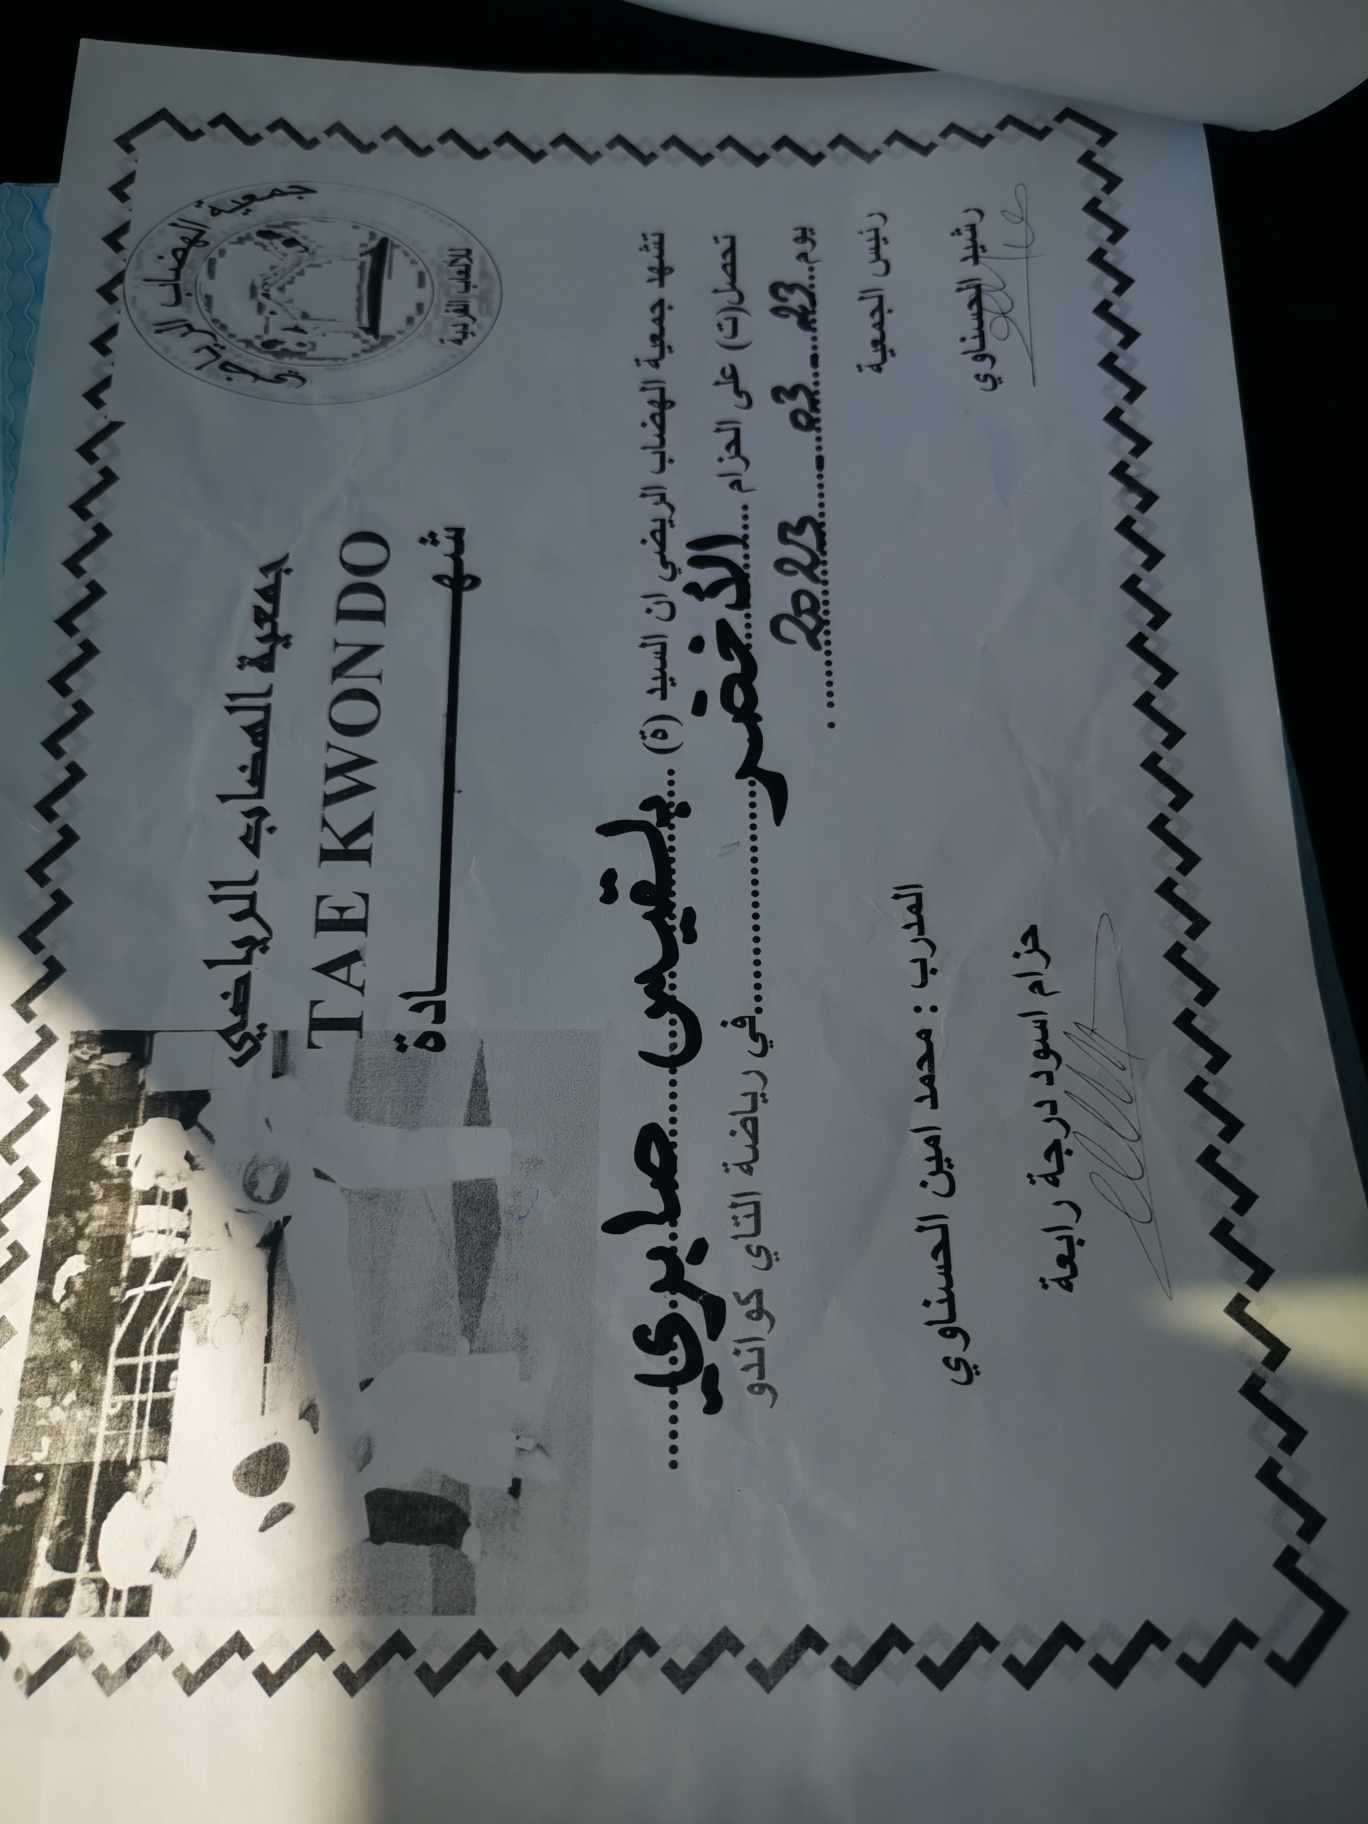 جمعية الهضاب الرياضي
للألعاب الفردية
جمعية الهضاب الرياضي
TAE KWONDO
شهـــــــادة
تشهد جمعية الهضاب الريضي ان السيد (ة) .... بلقيس صابري ....
تحصل(ت) على الحزام .... الأخضر .... في رياضة التاي كواندو
يوم.. 23 - 03 - 2023 .... .
رئيس الجمعية
رشيد الحسناوي
المدرب : محمد امين الحسناوي
حزام اسود درجة رابعة